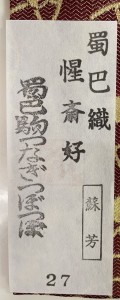 蜀巴織
惺斎好
蘇芳
蜀巴駒つなぎつぼつぼ
27